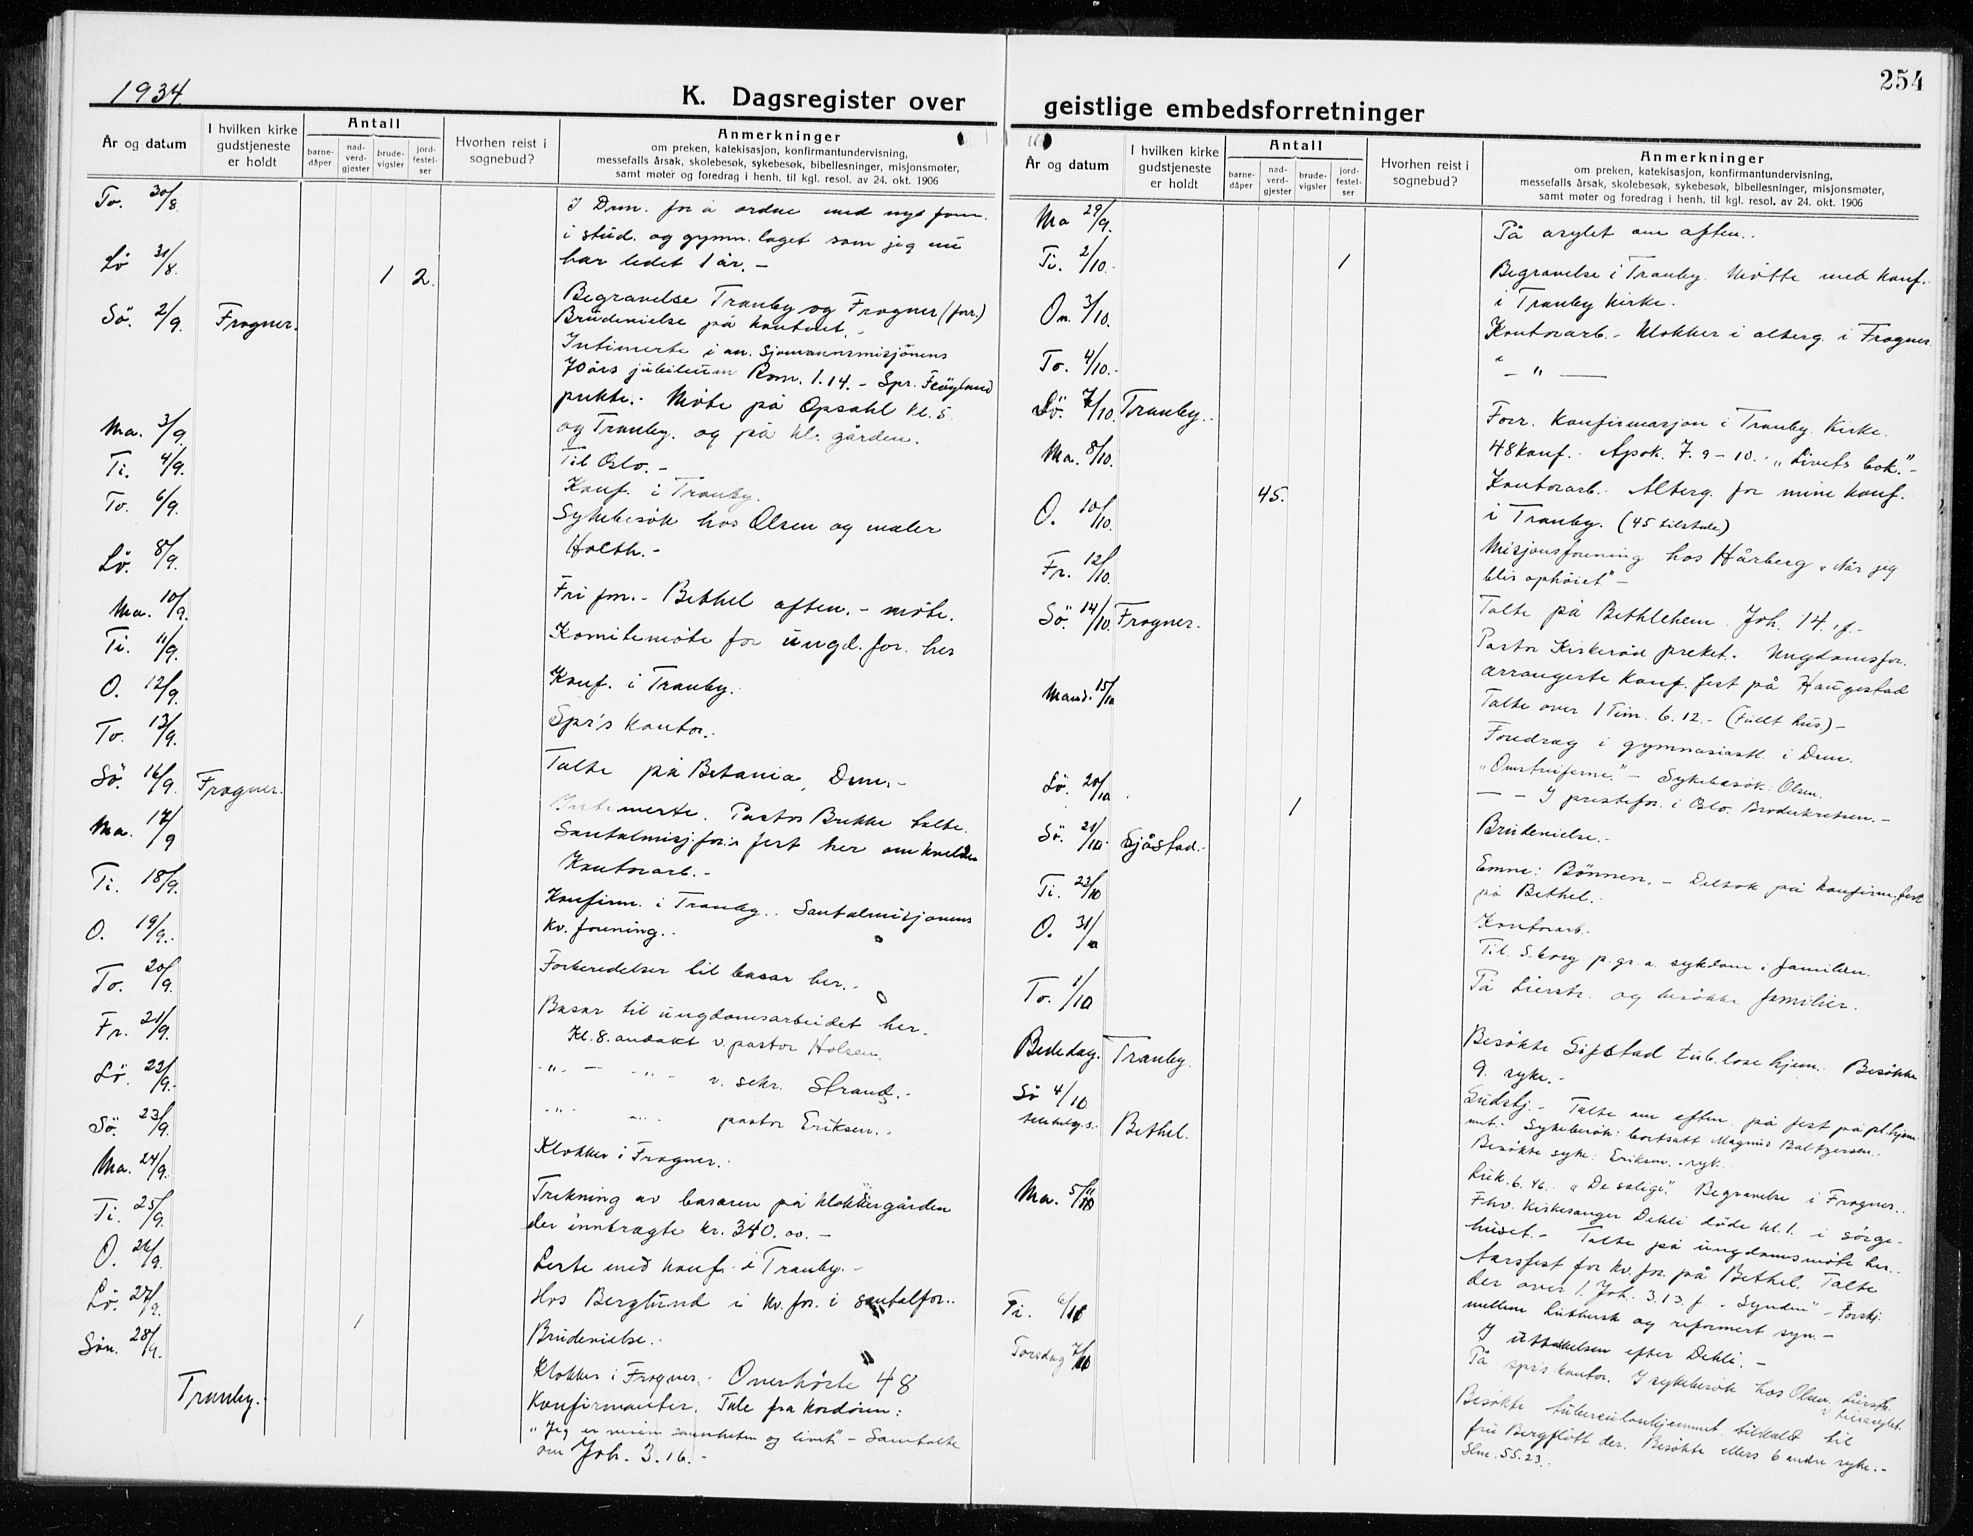 1934
K. Dagsregister over
År og datum
I hvilken kirke gudstjeneste er holdt
Antall
barne-dåper
nad-verd-gjester
brude-vigsler
jord-festel-ser
Hvorhen reist i sognebud?
Anmerkninger
om preken, katekisasjon, konfirmantundervisning,
messefalls årsak, skolebesøk, sykebesøk, bibellesninger, misjonsmøter,
samt møter og foredrag i henh. til kgl. resol. av 24. okt. 1906
To. 30/8. I Drm. for å ordne med nye form.
i stud. og gymn. laget som jeg nu
Lö 31/8. 1 2. har ledet 1 år. -
Begravelse Tranby og Frogner (forr.)
Sö. 2/9. Frogner. Brudevielse på kontoret. -
Intimerte i an. Sjømannsmisjonens
70 års jubileum Rom. 1.14. - Spr. Fløgland
prekte. - Møte på Opsahl kl. 5
Ma. 3/9. og Tranby. og på kl. gården.
Ti. 4/9. Til Oslo. -
To. 6/9. Konf. i Tranby.
Sykebesøk hos Olsen og maler
Lö. 8/9. Holth. -
Ma. 10/9. Fri fm. - Bethel aften. - møte.
Ti. 11/9. Komitemøte for ungd. for. her
O. 12/9. Konf. i Tranby.
To. 13/9. Spr's kontor.
Sö. 16/9. Frogner. Talte på Betania, Drm. -
Ma. 17/9 Intimerte. Pastor Brekke talte.
Santalmisj. for.s fest her om kvelden
Ti. 18/9. Kontorarb. -
O. 19/9. Konfirm. i Tranby. Santalmisjonens
kv. forening.
To. 20/9. Forberedelser til basar her.
Fr. 21/9. Basar til ungdomsarbeidet her.
Kl. 8. andakt v. pastor Holsen.
Lö. 22/9. -"- - -"- v. sekr. Strand. -
Sö. 23/9. -"- -"- pastor Eriksen. -
Ma. 24/9. Klokker i Frogner.
Ti. 25/9. Trekning av basaren på klokkergården
der innbragte kr. 340.00. -
O. 26/9. Leste med konf. i Tranby. -
Lö. 27/9. Hos Berglund i kv. for. i santalfor.
Sön. 28/9. 1 Brudevielse.
Tranby. Klokker i Frogner. Overhørte 48
Konfirmanter. Tale fra kordøren:
"Jeg er veien sannheten og livet" - Samtalte
om Joh. 3.16. -
254
geistlige embedsforretninger
År og datum
I hvilken kirke gudstjeneste er holdt
Antall
barne-dåper
nad-verd-gjester
brude-vigsler
jord-festel-ser
Hvorhen reist i sognebud?
Anmerkninger
om preken, katekisasjon, konfirmantundervisning,
messefalls årsak, skolebesøk, sykebesøk, bibellesninger, misjonsmøter,
samt møter og foredrag i henh. til kgl. resol. av 24. okt. 1906
Ma 29/9. På asylet om aften.
Ti. 2/10. 1 Begravelse i Tranby. Møtte med konf.
i Tranby kirke.
On. 3/10. Kontorarb. - Klokker i alterg. i Frogner
To. 4/10. - " -
Sö. 7/10. Tranby. Forr. Konfirmasjon i Tranby Kirke.
48 konf. Apok. 7. 9-10. "Livets bok." -
Ma. 8/10. 45. Kontorarb. Alterg. for mine konf.
i Tranby. (45 tilstede)
O. 10/10. Misjonsforening hos Hårberg "Når jeg
blir ophøiet" -
Fr. 12/10. Talte på Bethlehem. Joh. 14. 1 f. -
Sö. 14/10. Frogner. Pastor Kirkerød preket. Ungdomsfor.
arrangerte konf. fest på Haugestad
Talte over 1 Tim. 6.12. - (Fullt hus) -
Mand. 15/10 Foredrag i gymnasiastl. i Drm.
Sykebesøk: Olsen.
- - I prestefor. i Oslo. Broderkretsen. -
Lö. 20/10 1 Brudevielse. -
Sö. 21/10. Sjåstad. Emne: Bønnen. - Deltok på konfirm. fest
på Bethel.
Ti. 23/10 Kontorarb.
O. 31/10 Til S. borg p. gr. a. sykdom i familien.
To. 1/10 På Lierstr. og besøkte familier.
Besøkte Sipstad tub.lose hjem. Besøkte
9. syke. -
Bededag. Tranby. Gudstj. - Talte om aften på fest på pl. hjem
met. Sykebesøk: bortsatt Magnus Baltzersen.
Besøkte syke: Eriksen.
Sö 4/10 Bethel. Luk. 6. 46. "De salige". Begravelse i Frogner.
Fhv. Kirkesanger Dehli døde kl. 1. i sørge-
huset. - Talte på ungdomsmøte her.
Ma. 5/10 Aarsfest for kv. for. på Bethel. Talte
der over 1. Joh. 3.13. f. "Synden" - Forskj.
mellem luthersk og reformert syn. -
Ti. 6/10 I uttakelsen efter Dehli. -
Torsdag 7/10 På spr's kontor. I sykebesøk hos Olsen, Lierstr.
Besøkte tuberculosehjemmet tilkaldt til
fru Bergflødt der. Besøkte ellers 6 andre syke. -
Slm. 55.23.